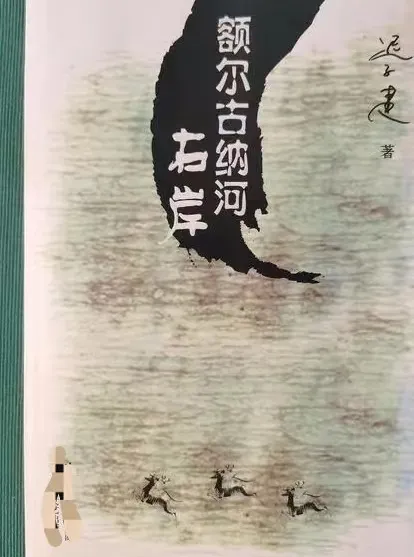 额尔古纳河
右岸
迟子建
著